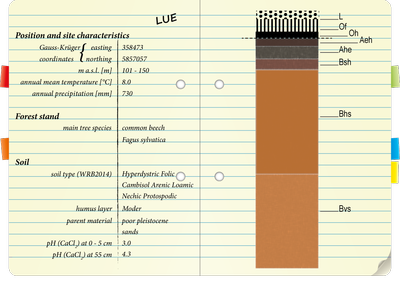 LUE
Position and site characteristics
Gauss-Krüger { easting 358473
coordinates northing 5857057
m a.s.l. [m] 101 - 150
annual mean temperature [°C] 8.0
annual precipitation [mm] 730
Forest stand
main tree species common beech
Fagus sylvatica
Soil
soil type (WRB2014) Hyperdystric Folic
Cambisol Arenic Loamic
Nechic Protospodic
humus layer Moder
parent material poor pleistocene
sands
pH (CaCl₂) at 0 - 5 cm 3.0
pH (CaCl₂) at 55 cm 4.3
L
Of
Oh
Aeh
Ahe
Bsh
Bhs
Bvs